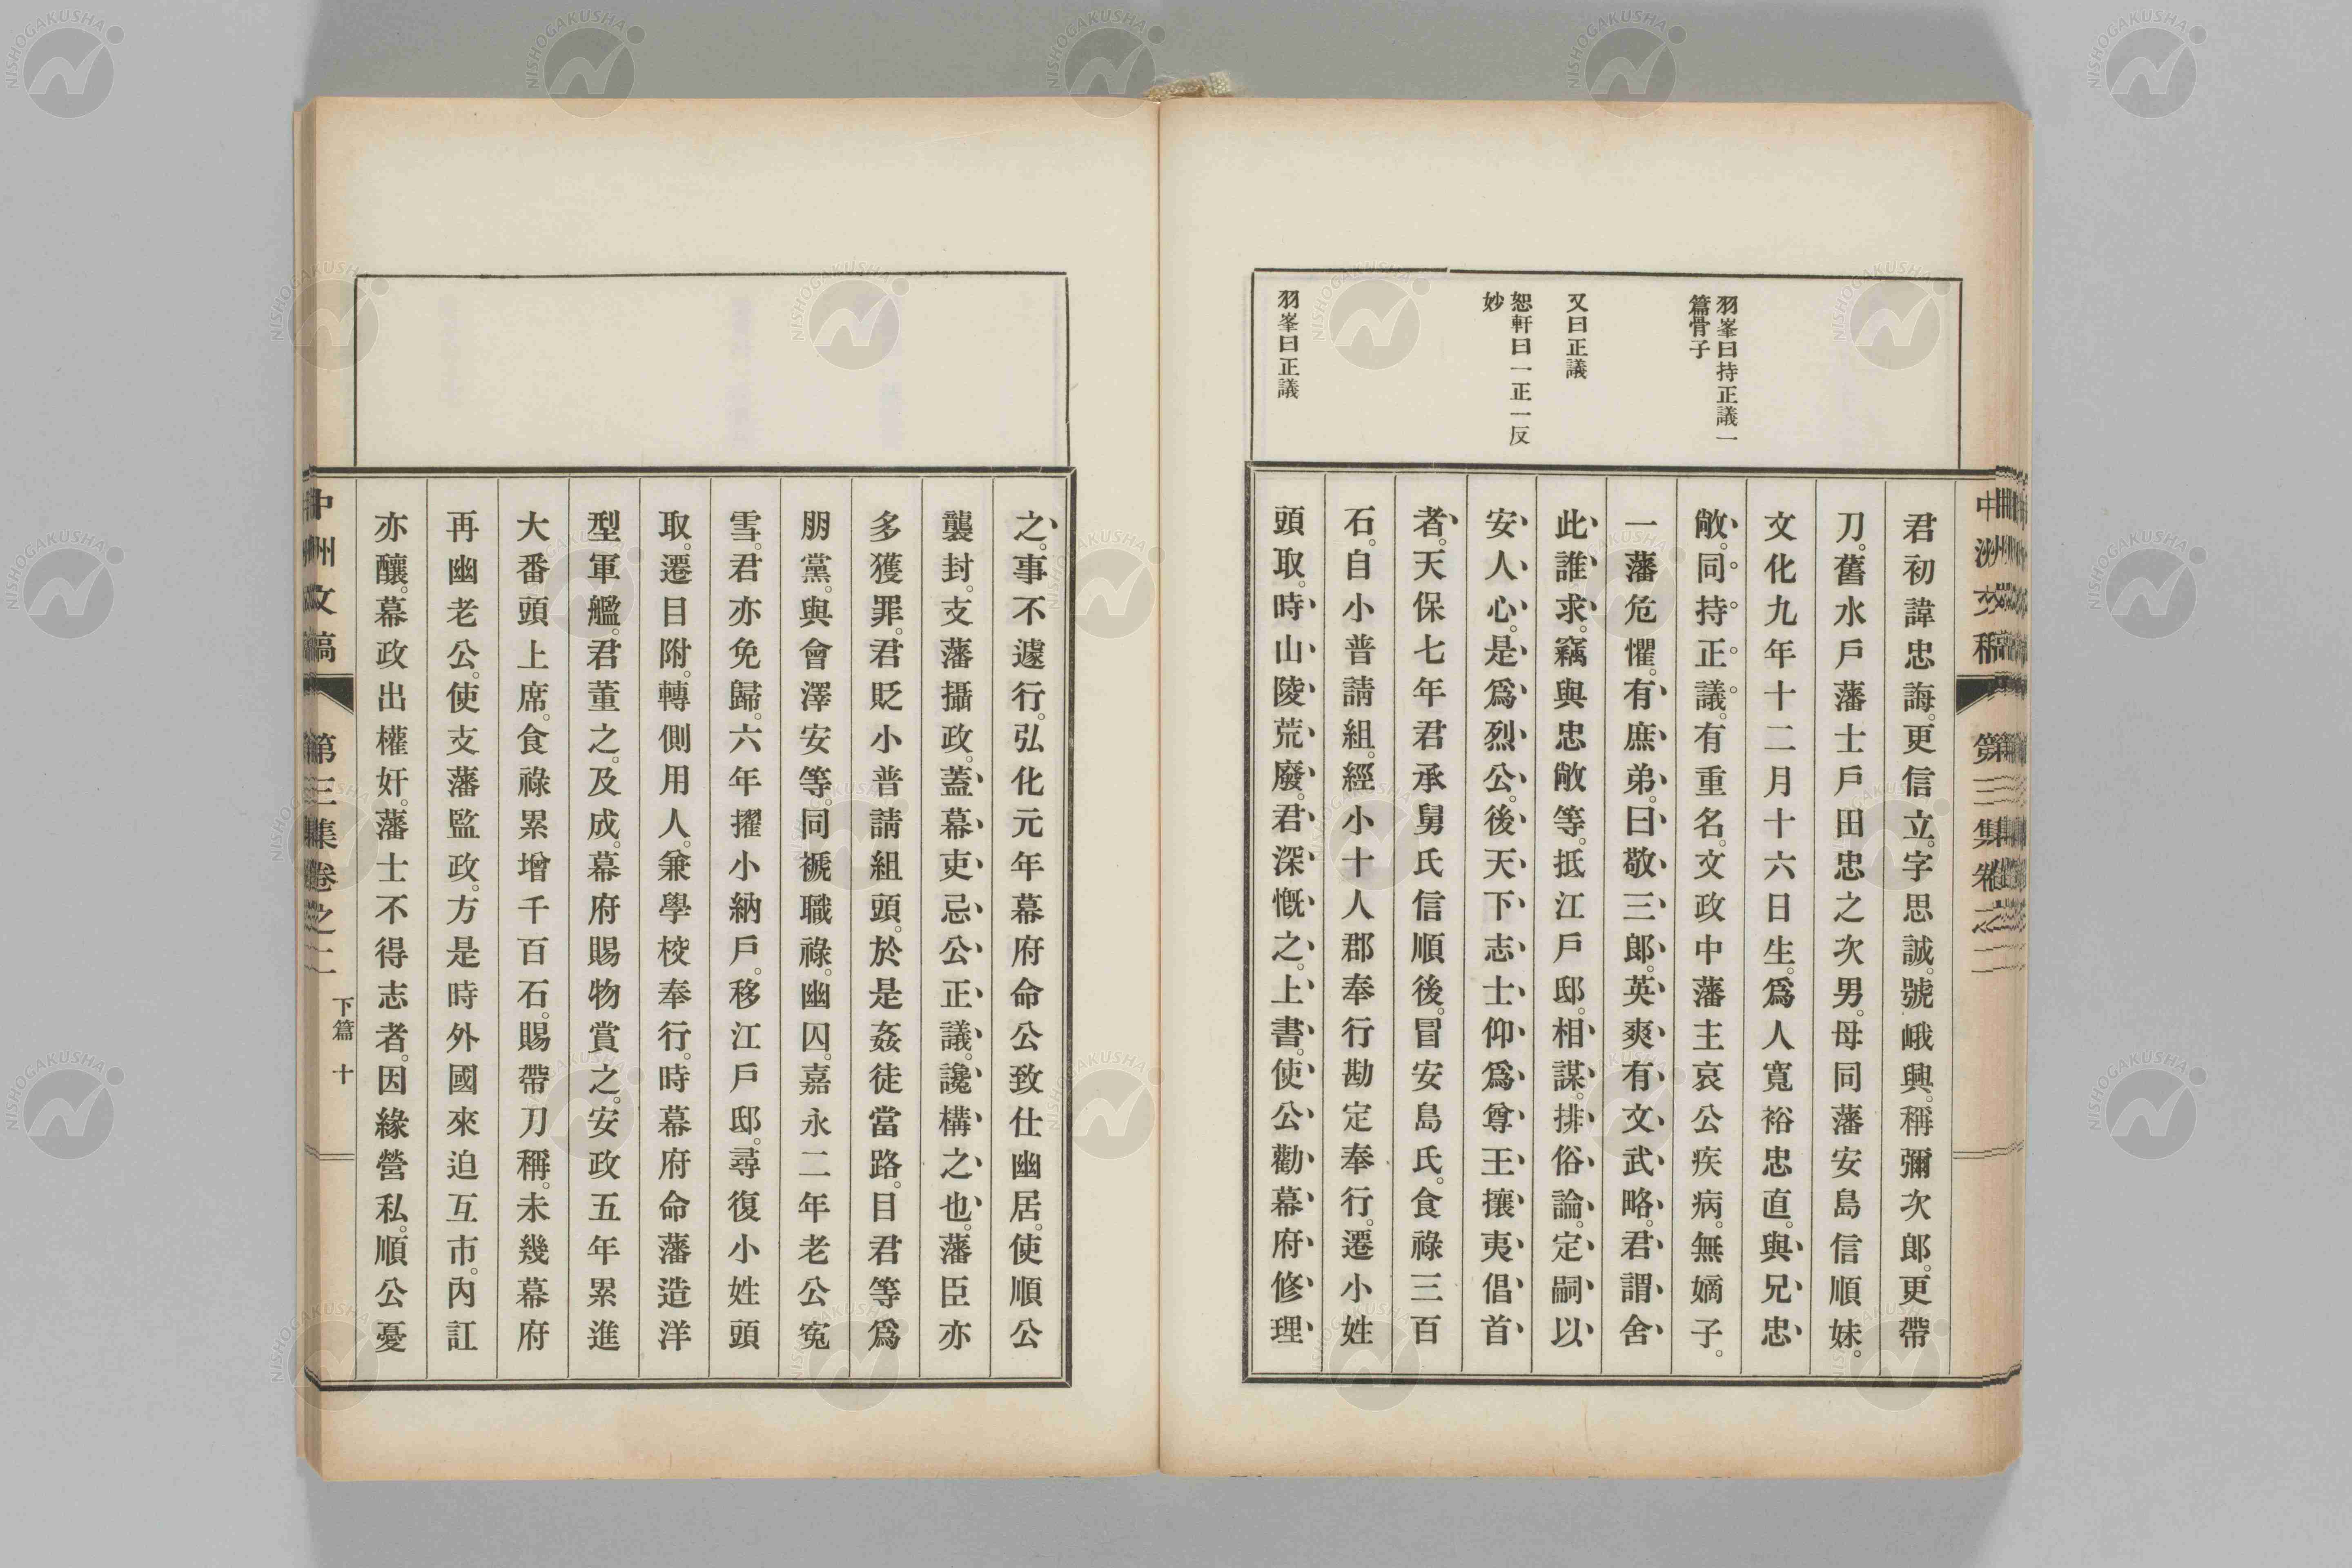 羽峯曰持正議一
篇骨子
又曰正議
恕軒曰一正一反
妙
羽峯曰正議
君初諱忠誨。更信立。字思誠。號峨興。稱彌次郎。更帶
刀。舊水戶藩士戶田忠之次男。母同藩安島信順妹。
文化九年十二月十六日生。爲人寬裕忠直。與兄忠
敞。同持正議。有重名。文政中藩主哀公疾病。無嫡子。
一藩危懼。有庶弟。曰敬三郎。英爽有文武略。君謂舍
此誰求。竊與忠敞等。抵江戶邸。相謀。排俗論。定嗣以
安人心。是爲烈公。後天下志士仰爲尊王攘夷倡首
者。天保七年君承舅氏信順後。冒安島氏。食祿三百
石。自小普請組。經小十人郡奉行勘定奉行。遷小姓
頭取。時山陵荒廢。君深慨之。上書。使公勸幕府修理
之。事不遽行。弘化元年幕府命公致仕幽居。使順公
襲封。支藩攝政。蓋幕吏忌公正議。讒構之也。藩臣亦
多獲罪。君貶小普請組頭。於是姦徒當路。目君等爲
朋黨。與會澤安等。同褫職祿。幽囚。嘉永二年老公寃
雪。君亦免歸。六年擢小納戶。移江戶邸。尋復小姓頭
取。遷目附。轉側用人。兼學校奉行。時幕府命藩造洋
型軍艦。君董之。及成。幕府賜物賞之。安政五年累進
大番頭上席。食祿累增千百石。賜帶刀稱。未幾幕府
再幽老公。使支藩監政。方是時外國來迫互市。內訌
亦釀。幕政出權奸。藩士不得志者。因緣營私。順公憂
中洲文稿 第三集卷之二 下篇 十